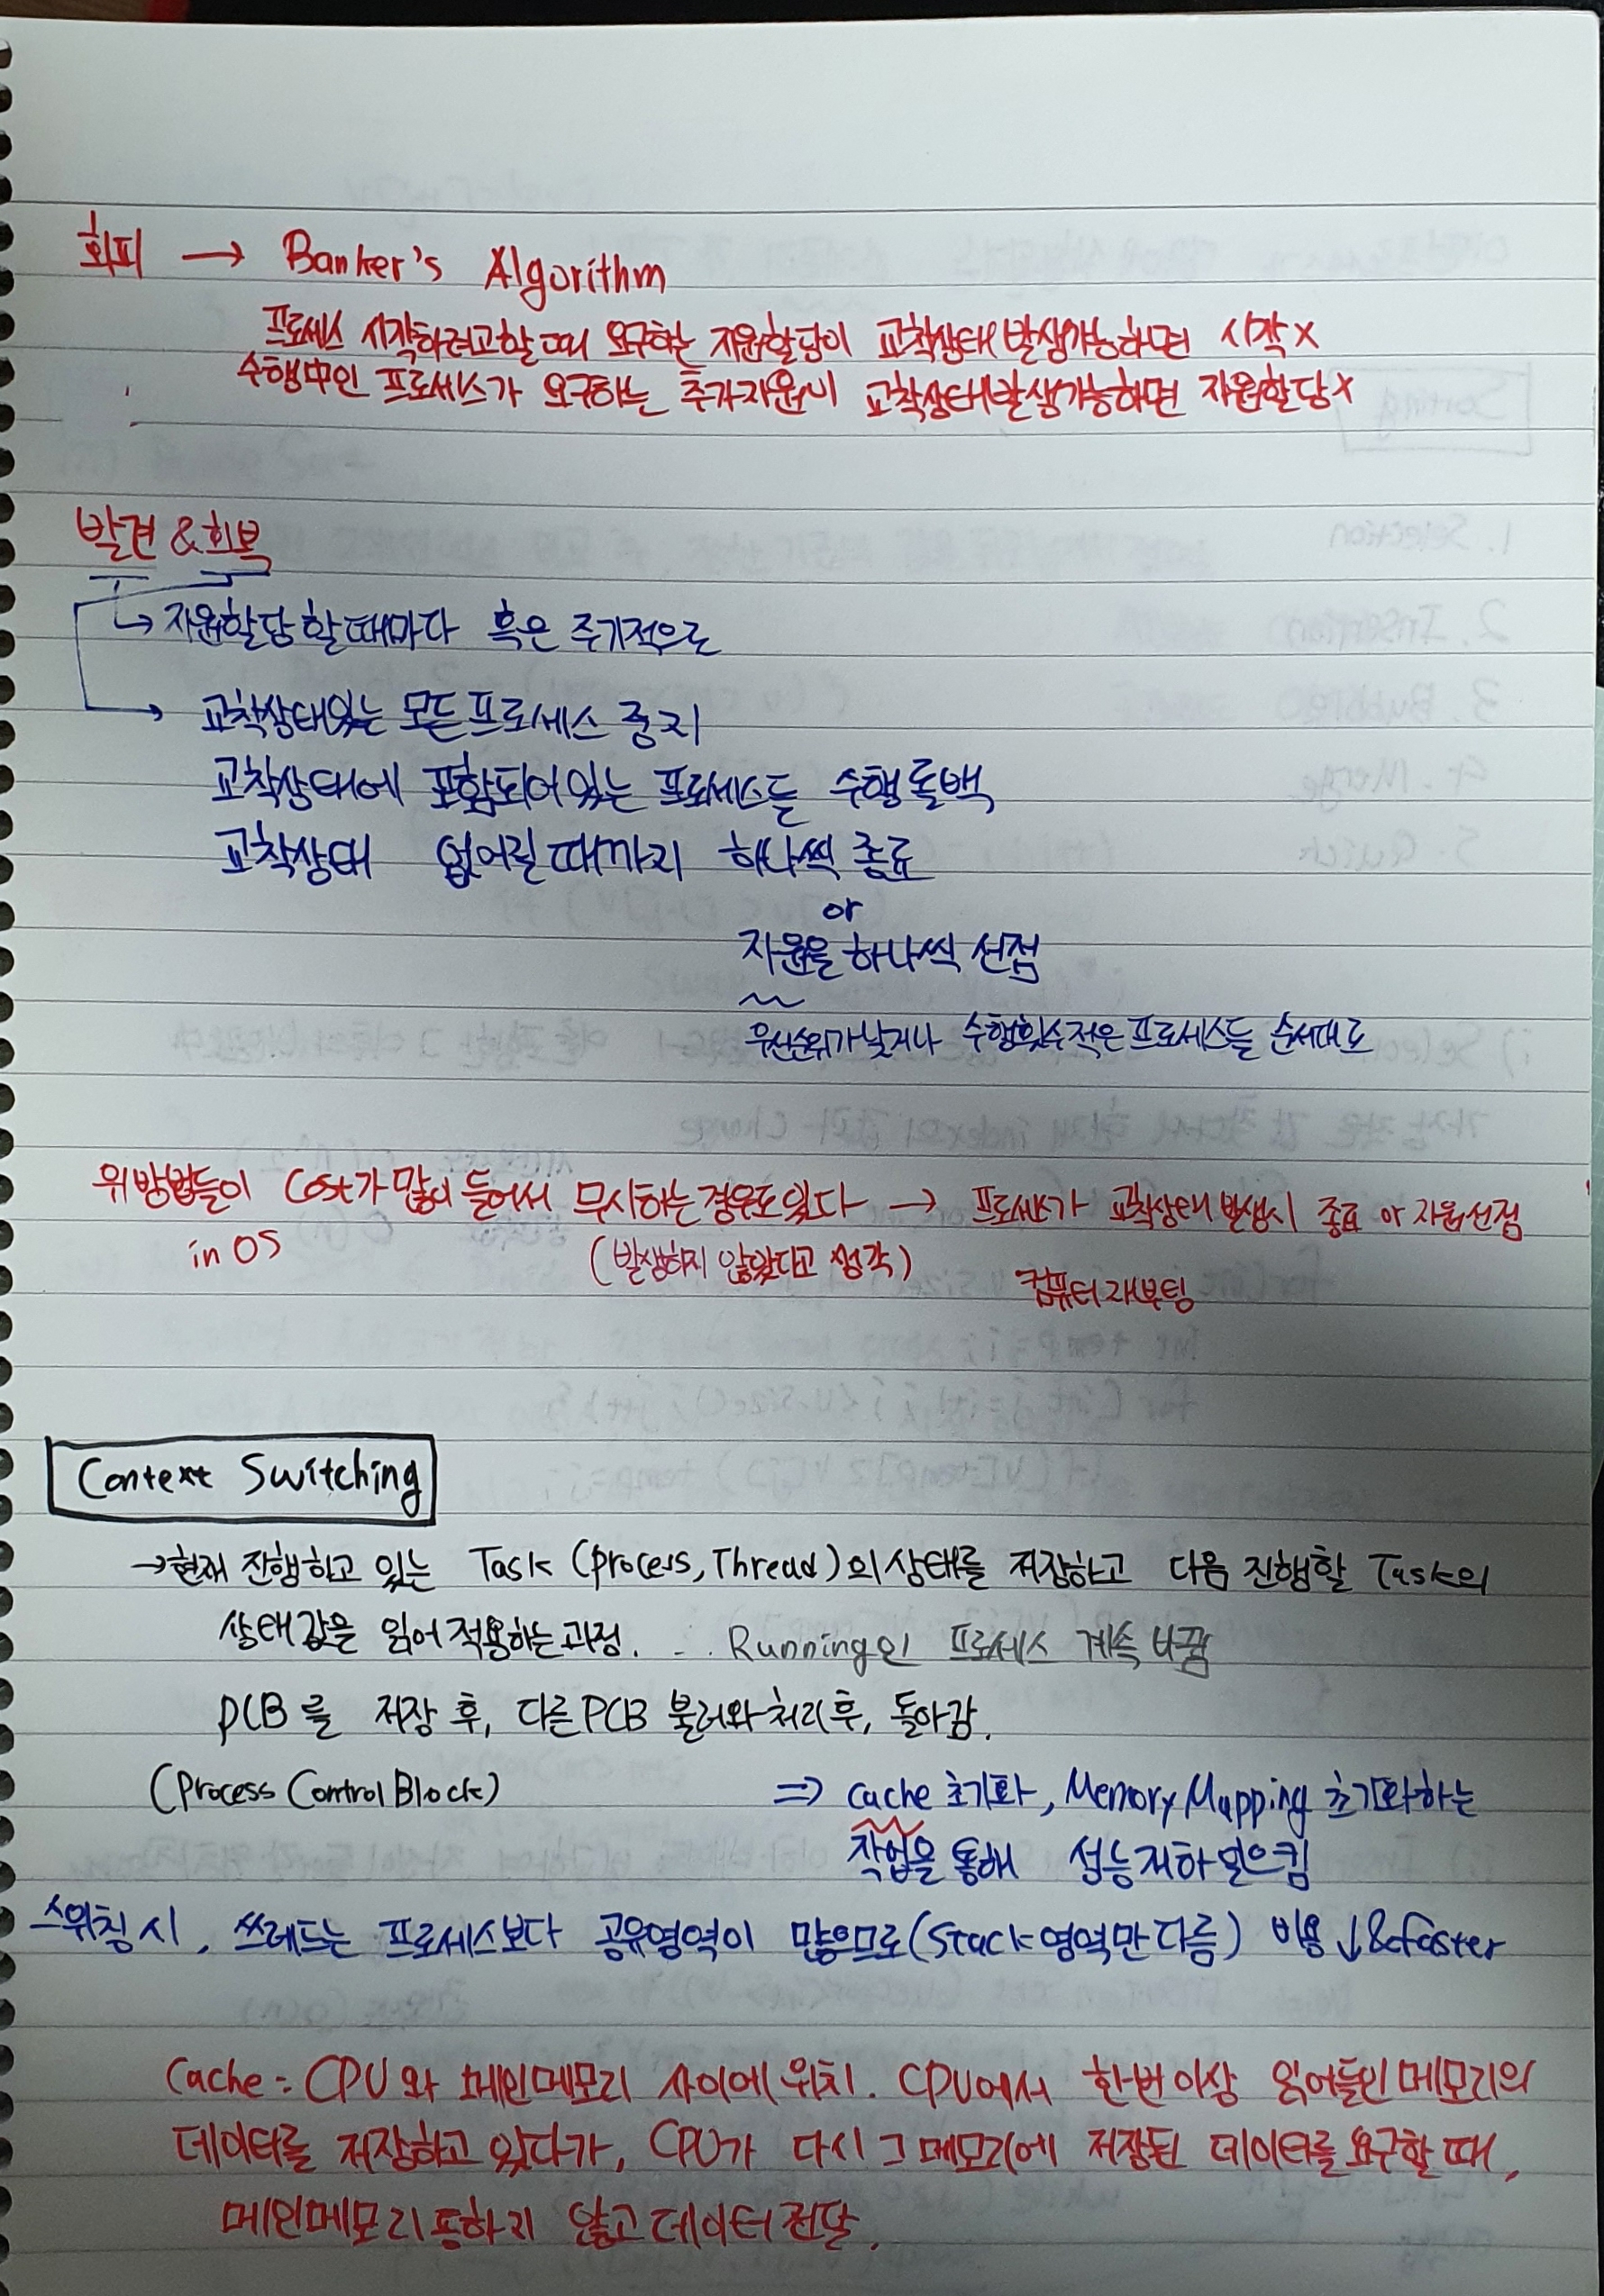 회피 → Banker's Algorithm
프로세스 시작하려고할때 요구하는 자원할당이 교착상태발생가능하면 시작×
수행中인 프로세스가 요구하는 추가자원이 교착상태발생가능하면 자원할당×
발견 & 회복
↳ 자원할당 할때마다 혹은 주기적으로
→ 교착상태있는 모든프로세스 중지
교착상태에 포함되어있는 프로세스들 수행롤백
교착상태 없어질때까지 하나씩 종료
or
자원을 하나씩 선점
우선순위가낮거나 수행횟수적은프로세스들 순서대로
위방법들이 Cost가많이 들어서 무시하는경우도있다 → 프로세스가 교착상태 발생시 종료 or 자원선점
in OS (발생하지 않았다고 생각) 컴퓨터재부팅
Context Switching
→현재 진행하고 있는 Task (process, Thread)의상태를 저장하고 다음 진행할 Task의
상태값을 읽어 적용하는과정. ... Running인 프로세스 계속 바뀜
PCB를 저장 후, 다른PCB 불러와처리후, 돌아감.
(Process Control Block) ⇒ Cache 초기화, Memory Mapping 초기화하는
작업을 통해 성능저하 일으킴
스위칭시, 쓰레드는 프로세스보다 공유영역이 많으므로(Stack영역만 다름) 비용↓&faster
Cache : CPU와 메인메모리 사이에위치. CPU에서 한번이상 읽어들인메모리의
데이터를 저장하고 있다가, CPU가 다시 그메모리에 저장된 데이터를요구할때,
메인메모리통하지 않고데이터전달.